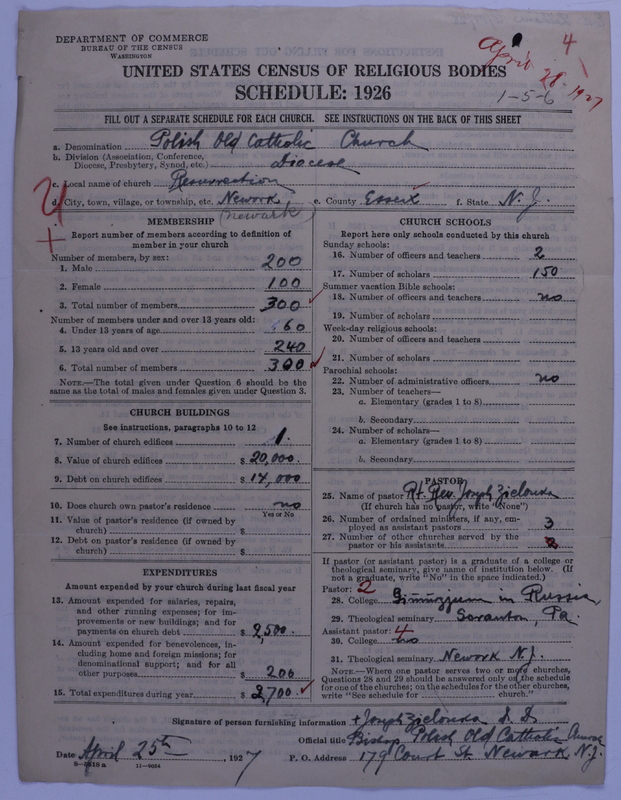 DEPARTMENT OF COMMERCE
BUREAU OF THE CENSUS
WASHINGTON
April 28 - 1927
4
1-5-6
UNITED STATES CENSUS OF RELIGIOUS BODIES
SCHEDULE: 1926
FILL OUT A SEPARATE SCHEDULE FOR EACH CHURCH. SEE INSTRUCTIONS ON THE BACK OF THIS SHEET
a. Denomination Polish Old Catholic Church
b. Division (Association, Conference,
Diocese, Presbytery, Synod, etc.) Diocese
c. Local name of church Resurrection
d. City, town, village, or township, etc. Newark, e. County Essex f. State N. J.
(Newark)
MEMBERSHIP
Report number of members according to definition of
member in your church
Number of members, by sex:
1. Male 200
2. Female 100
3. Total number of members 300
Number of members under and over 13 years old:
4. Under 13 years of age 60
5. 13 years old and over 240
6. Total number of members 300
NOTE.—The total given under Question 6 should be the
same as the total of males and females given under Question 3.
CHURCH BUILDINGS
See instructions, paragraphs 10 to 12
7. Number of church edifices 1.
8. Value of church edifices $ 20,000.
9. Debt on church edifices $ 14,000
10. Does church own pastor's residence no
Yes or No
11. Value of pastor's residence (if owned by
church) $
12. Debt on pastor's residence (if owned by
church) $
EXPENDITURES
Amount expended by your church during last fiscal year
13. Amount expended for salaries, repairs,
and other running expenses; for im-
provements or new buildings; and for
payments on church debt $ 2,500.
14. Amount expended for benevolences, in-
cluding home and foreign missions; for
denominational support; and for all
other purposes $ 200
15. Total expenditures during year $ 2,700.
CHURCH SCHOOLS
Report here only schools conducted by this church
Sunday schools:
16. Number of officers and teachers 2
17. Number of scholars 150
Summer vacation Bible schools:
18. Number of officers and teachers no
19. Number of scholars
Week-day religious schools:
20. Number of officers and teachers
21. Number of scholars
Parochial schools:
22. Number of administrative officers no
23. Number of teachers—
a. Elementary (grades 1 to 8)
b. Secondary
24. Number of scholars—
a. Elementary (grades 1 to 8)
b. Secondary
PASTOR
25. Name of pastor Rt. Rev. Joseph Zielonka
(If church has no pastor, write "None")
26. Number of ordained ministers, if any, em-
ployed as assistant pastors 3
27. Number of other churches served by the
pastor or his assistants
If pastor (or assistant pastor) is a graduate of a college or
theological seminary, give name of institution below. (If
not a graduate, write "No" in the space indicated.)
Pastor: 2
28. College Gimnazjum in Russia
29. Theological seminary Scranton, Pa.
Assistant pastor: 4
30. College no
31. Theological seminary Newark N. J.
NOTE.—Where one pastor serves two or more churches,
Questions 28 and 29 should be answered only on the schedule
for one of the churches; on the schedules for the other churches,
write "See schedule for church."
Signature of person furnishing information + Joseph Zielonka D. D.
Official title Bishop Polish Old Catholic Church
Date April 25th, 1927 P. O. Address 179 Court St. Newark, N. J.
8—5319 a 11—9034